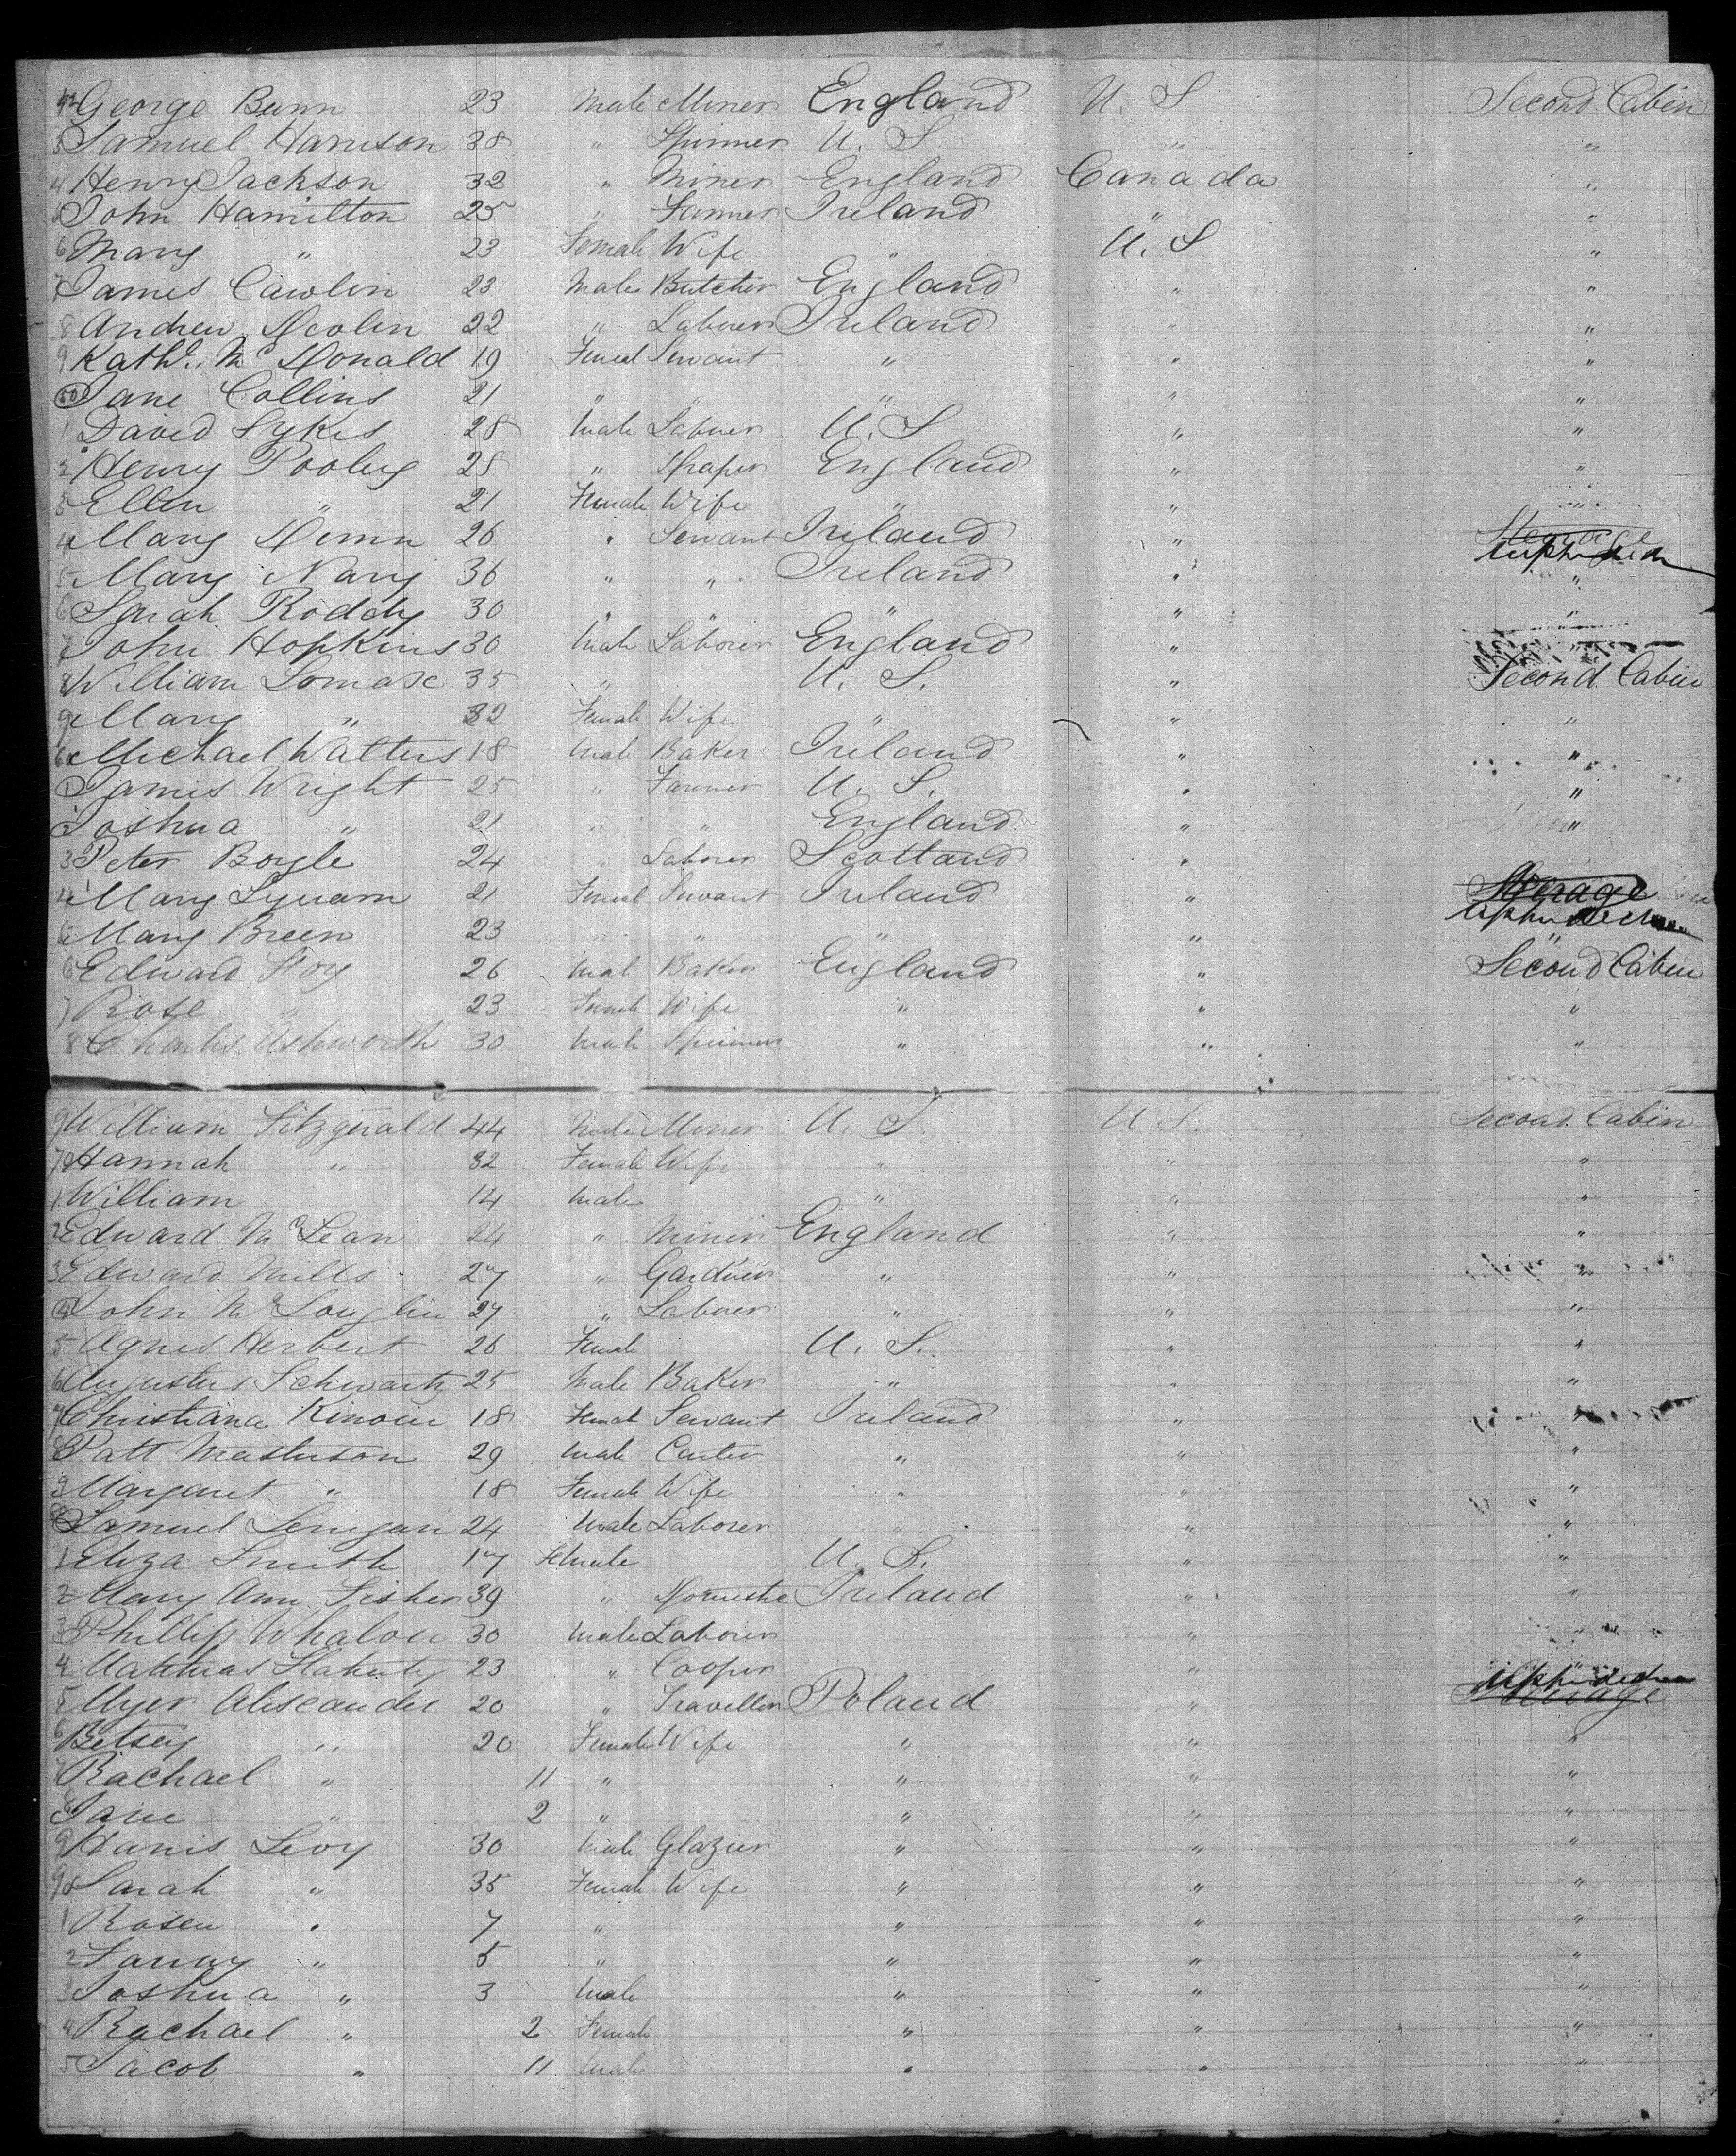 42 George Bunn 23 Male Miner England U. S Second Cabin
3 Samuel Harrison 38 " Spinner U. S. " "
4 Henry Jackson 32 " Miner England Canada "
5 John Hamilton 25 " Farmer Ireland " "
6 Mary " 23 Female Wife " U. S "
7 James Cawlin 23 Male Butcher England " "
8 Andrew Deolin 22 " Laborer Ireland " "
9 Kath. Mc Donald 19 Femal Servant " " "
50 Jane Collins 21 " " " " "
1 David Sykes 28 Male Laborer U. S " "
2 Henry Pooley 28 " Draper England " "
3 Ellen " 21 Female Wife " " "
4 Mary 26 " Servant Ireland " Steerage
5 Mary Nary 36 " " Ireland " "
6 Sarah Roddy 30 " " " " "
7 John Hopkins 30 Male Laborer England " "
8 William Lomax 35 " U. S. " Second Cabin
9 Mary " 32 Female Wife " " "
60 Michael Walters 18 Male Baker Ireland " "
1 James Wright 25 " Farmer U. S. " "
2 Joshua " 21 " " England " "
3 Peter Boyle 24 " Laborer Scotland " "
4 Mary 21 Femal Servant Ireland " Steerage
5 Mary Breen 23 " " " " "
6 Edward Foy 26 Male Baker England " Second Cabin
7 Rose " 23 Female Wife " " "
8 Charles Ashworth 30 Male Spinner " " "
9 William Fitzgerald 44 Male Miner U. S. U S. Second Cabin
70 Hannah " 32 Female Wife " " "
1 William 14 Male " " "
2 Edward McLean 24 " Miner England " "
3 Edward Mills 27 " Gardner " " "
4 John McLouglin 27 " Laborer " " "
5 Agnes Herbert 26 Female U. S. " "
6 Augustus Schwartz 25 Male Baker " " "
7 Christiana 18 Femal Servant Ireland " "
8 Patt Masterson 29 Male Carter " " "
9 Margaret " 18 Female Wife " " "
80 Samuel Lenigan 24 Male Laborer " " "
1 Eliza Smith 17 Female U. S. " "
2 Mary Ann Fisher 39 " Domestic Ireland " "
3 Phillip Whalon 30 Male Laborer " "
4 Matthias Flaherty 23 " Cooper " "
5 Myer Alexander 20 " Traveller Poland " Steerage
6 Betsey " 20 Female Wife " " "
7 Rachael " 11 " " " "
8 Jane " 2 " " " "
9 Harris Levy 30 Male Glazier " " "
90 Sarah " 35 Female Wife " " "
1 Rosen " 7 " " " "
2 Fanny " 5 " " " "
3 Joshua " 3 Male " " "
4 Rachael " 2 Female " " "
5 Jacob " 11 Male " " "